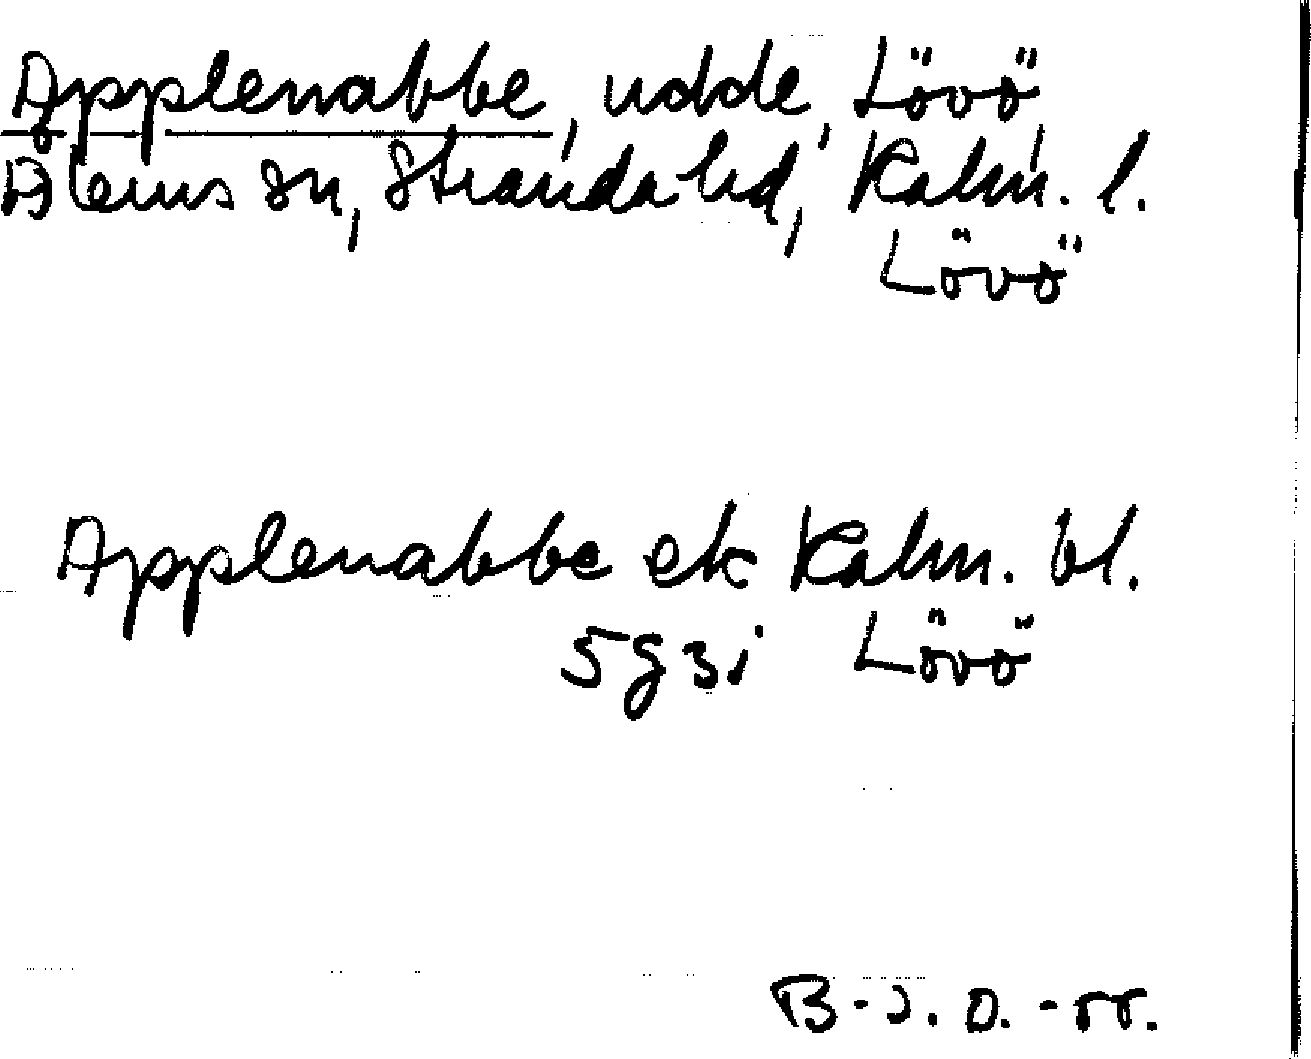 Applenabbe, udde, Lövö,
Ålems sn, Stranda hd, Kalm. l.
Lövö
Applenabbe ek Kalm. bl.
5g3i Lövö
B-J. O. -55.